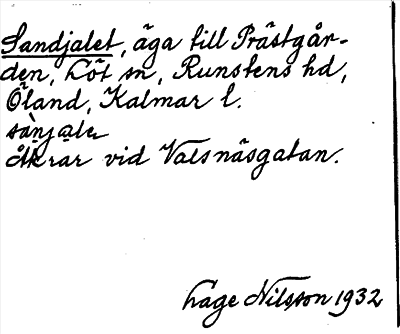 Sandjalet, äga till Prästgår-
den, Löt sn, Runstens hd,
Öland, Kalmar l.
sànjalẹ
åkrar vid Valsnäsgatan.
Hage Nilsson 1932